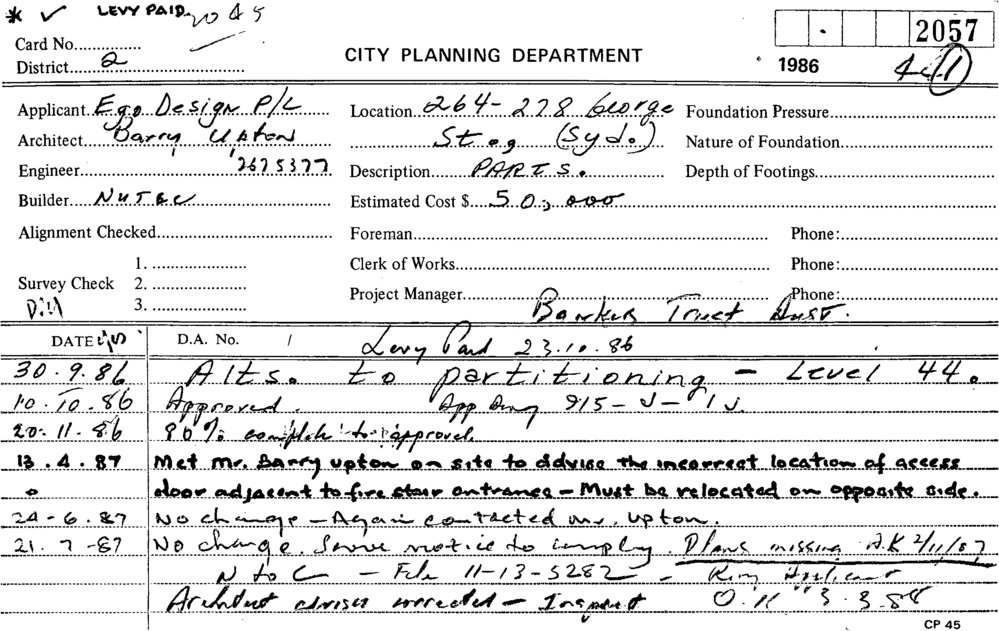 * ✓ LEVY PAID
Card No.
District 2
CITY PLANNING DEPARTMENT
2057
1986
Applicant Ego Design P/L
Location 264-278 George
Foundation Pressure
Architect Barry Upton
St., (Syd.)
Nature of Foundation
Engineer 2675377
Description PARTS.
Depth of Footings
Builder NUTEC
Estimated Cost $ 50,000
Alignment Checked
Foreman
Phone:
1.
Clerk of Works
Phone:
Survey Check 2.
Project Manager
Phone:
3.
Bankers Trust Aust.
DATE
D.A. No. /
Levy Paid 23.10.86
30.9.86 Alts. to partitioning - Level 44.
10.10.86 Approved. App Dwg 915-J-1J.
20.11.86 80% complete to approval.
13.4.87 Met Mr. Barry Upton on site to advise the incorrect location of access
door adjacent to fire stair entrance - Must be relocated on opposite side.
24-6.87 No change - Again contacted Mr. Upton.
21.7-87 No change. Serve notice to comply. Plans missing A.K 2/11/87
N to C - File 11-13-5282 - Ring Applicant
Architect advises corrected - Inspect 3.3.88
CP 45